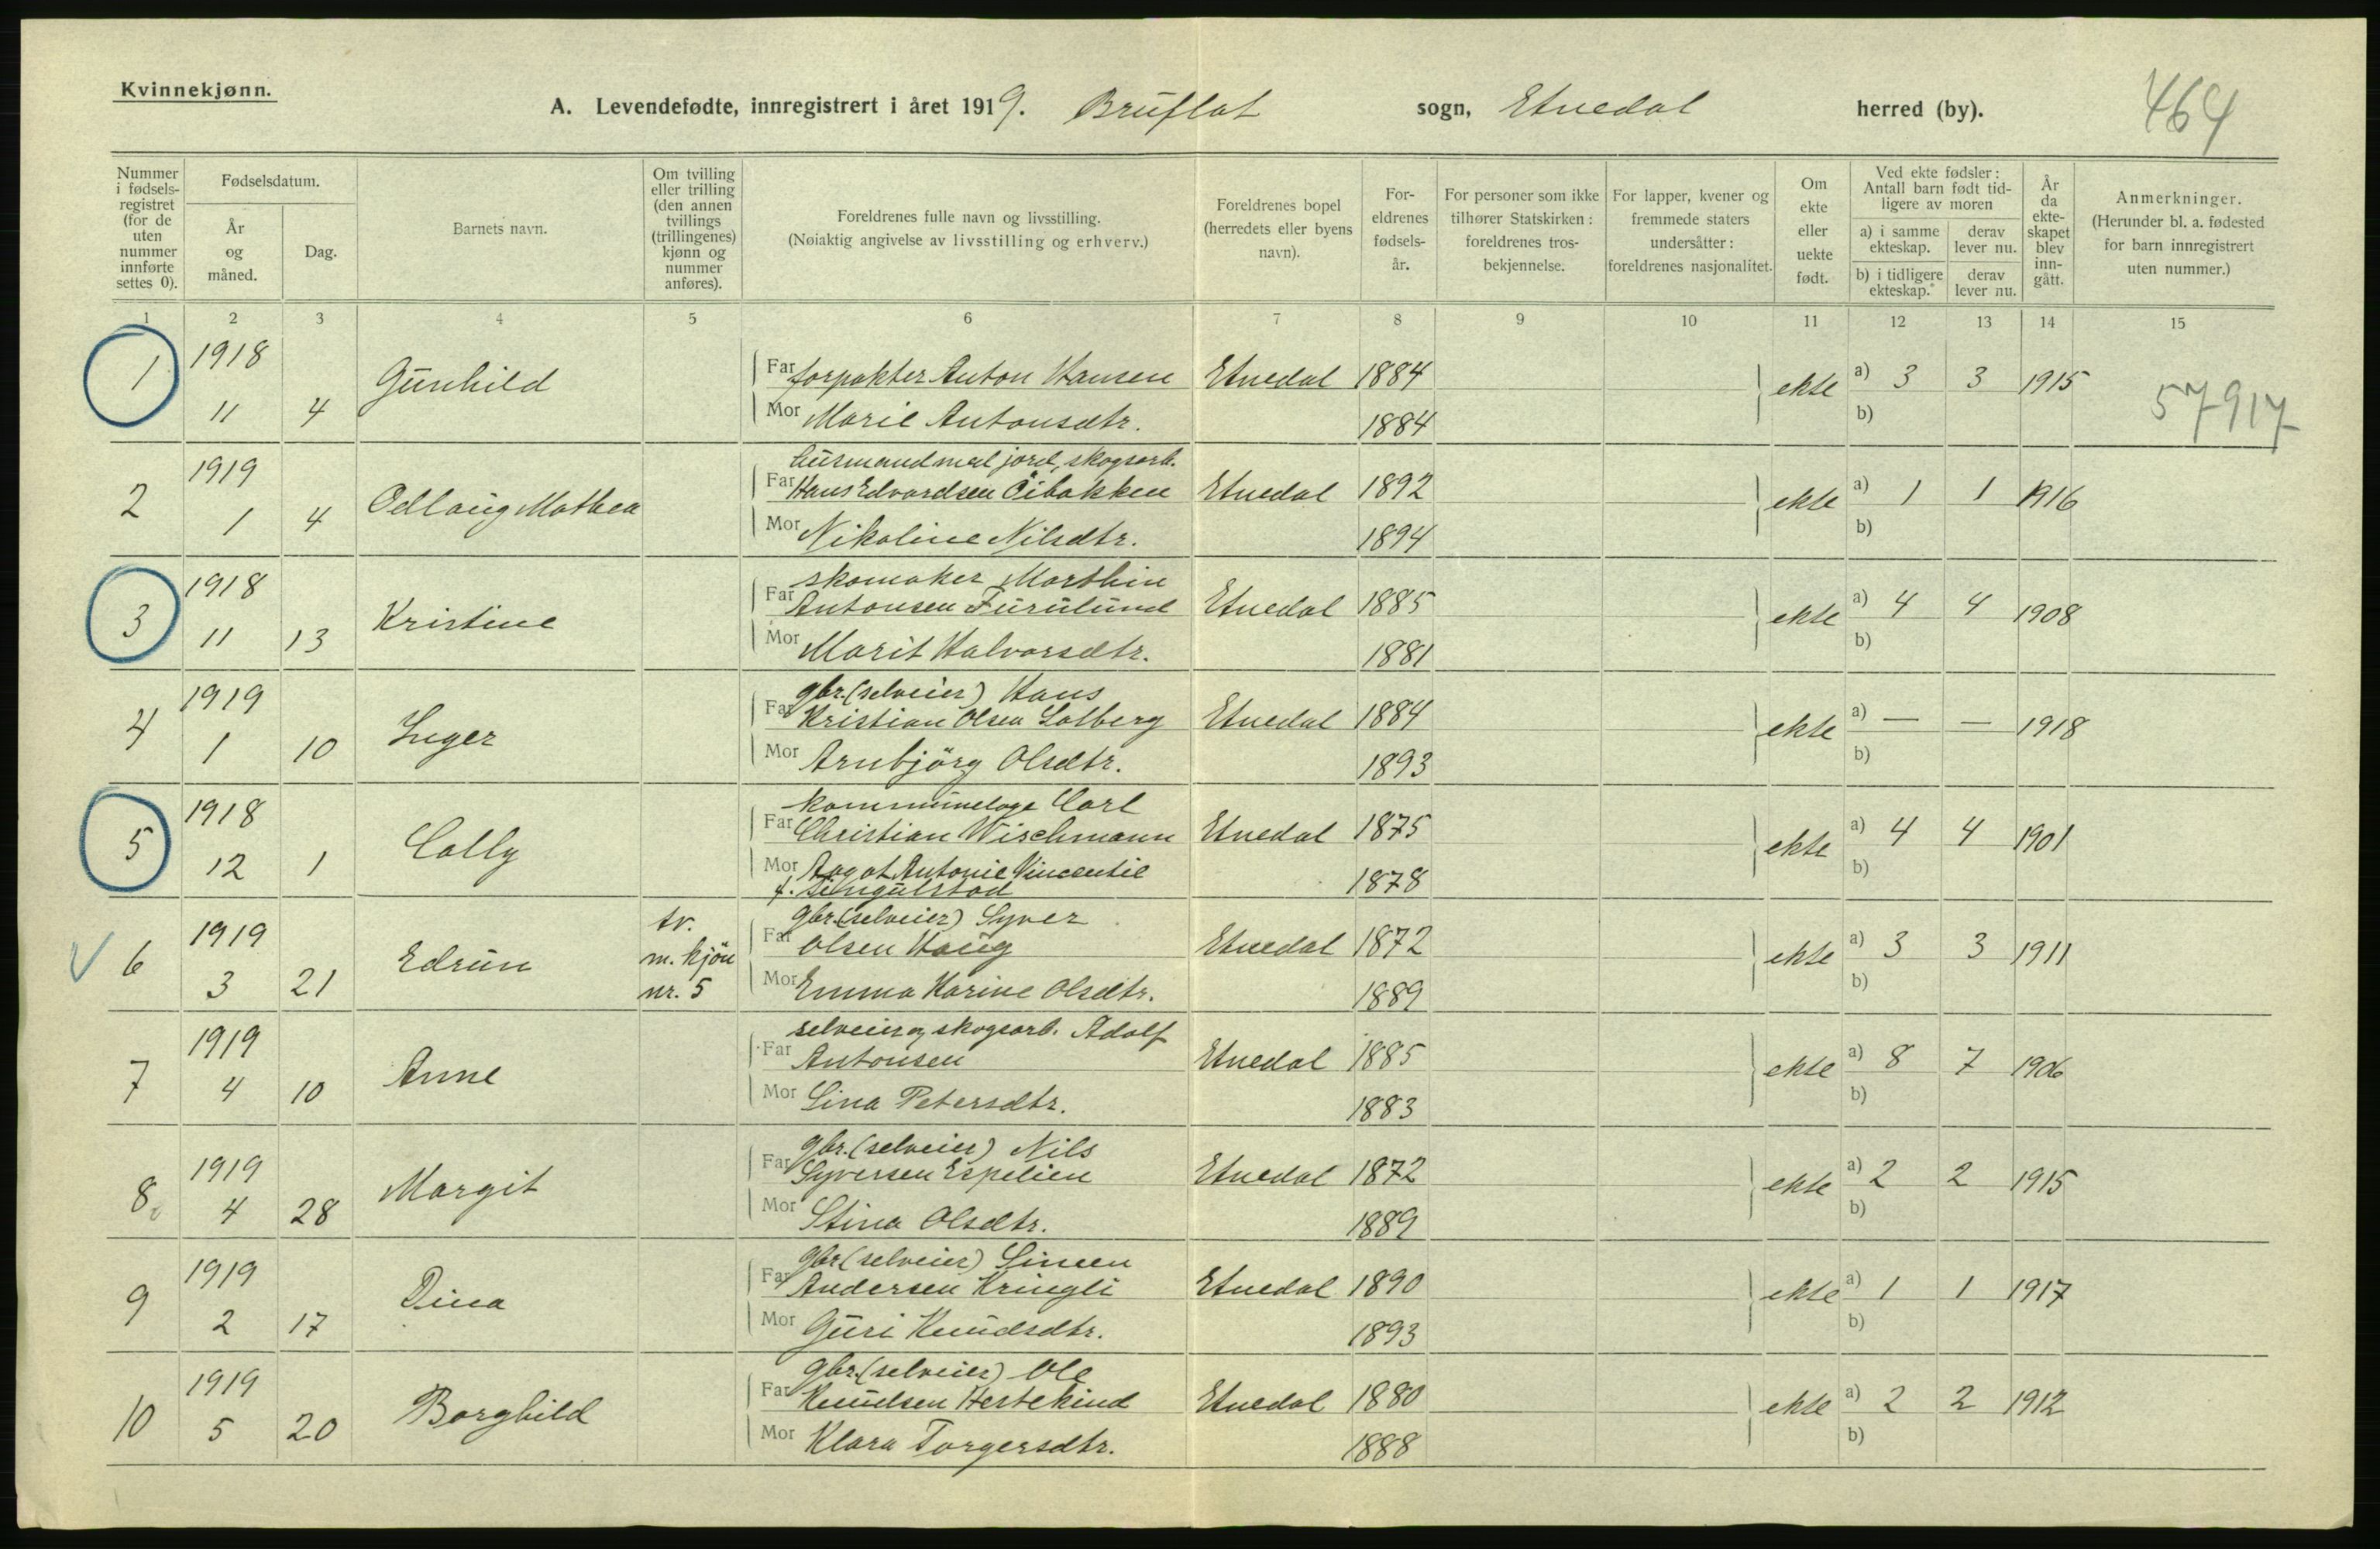 Kvinnekjønn.
A. Levendefødte, innregistrert i året 1919. Bruflat sogn, Etnedal herred (by).
464
Nummer i fødselsregistret (for de uten nummer innførte settes 0).
Fødselsdatum.
År og måned.
Dag.
Barnets navn.
Om tvilling eller trilling (den annen tvillings (trillingenes) kjønn og nummer anføres).
Foreldrenes fulle navn og livsstilling.
(Nøiaktig angivelse av livsstilling og erhverv.)
Foreldrenes bopel (herredets eller byens navn).
Foreldrenes fødselsår.
For personer som ikke tilhører Statskirken: foreldrenes trosbekjennelse.
For lapper, kvener og fremmede staters undersåtter: foreldrenes nasjonalitet.
Om ekte eller uekte født.
Ved ekte fødsler: Antall barn født tidligere av moren
a) i samme ekteskap.
derav lever nu.
b) i tidligere ekteskap.
derav lever nu.
År da ekteskapet blev inngått.
Anmerkninger.
(Herunder bl. a. fødested for barn innregistrert uten nummer.)
1 2 3 4 5 6 7 8 9 10 11 12 13 14 15
1 1918 Gunhild Far forpakter Anton Hansen Etnedal 1884 ekte a) 3 3 1915
11 4 Mor Marie Antonsdtr. 1884 b) 57917
husmand med jord, skogsarb.
2 1919 Odlaug Mathea Far Hans Edvardsen Öibakken Etnedal 1892 ekte a) 1 1 1916
1 4 Mor Nikoline Nilsdtr. 1894 b)
skomaker Marthin
3 1918 Kristine Far Antonsen Furulund Etnedal 1885 ekte a) 4 4 1908
11 13 Mor Marit Halvorsdtr. 1881 b)
gbr. (selveier) Hans
4 1919 Inger Far Kristian Olsen Solberg Etnedal 1884 ekte a) — — 1918
1 10 Mor Arnbjörg Olsdtr. 1893 b)
kommunelæge Carl
5 1918 Colly Far Christian Wischmann Etnedal 1875 ekte a) 4 4 1901
12 1 Mor Aagot Antonie Vincentie 1878 b)
f.
tv. gbr. (selveier) Syver
6 1919 Edrun m. kjön Far Olsen Haug Etnedal 1872 ekte a) 3 3 1911
3 21 nr. 5 Mor Emma Karine Olsdtr. 1889 b)
selveier og skogsarb. Adolf
7 1919 Anne Far Antonsen Etnedal 1885 ekte a) 8 7 1906
4 10 Mor Lina Petersdtr. 1883 b)
gbr. (selveier) Nils
8 1919 Margit Far Syversen Espelien Etnedal 1872 ekte a) 2 2 1915
4 28 Mor Stina Olsdtr. 1889 b)
gbr (selveier) Simen
9 1919 Dina Far Andersen Kringli Etnedal 1890 ekte a) 1 1 1917
2 17 Mor Guri Knudsdtr. 1893 b)
gbr. (selveier) Ole
10 1919 Borghild Far Knudsen Hestekind Etnedal 1880 ekte a) 2 2 1912
5 20 Mor Klara Torgersdtr. 1888 b)